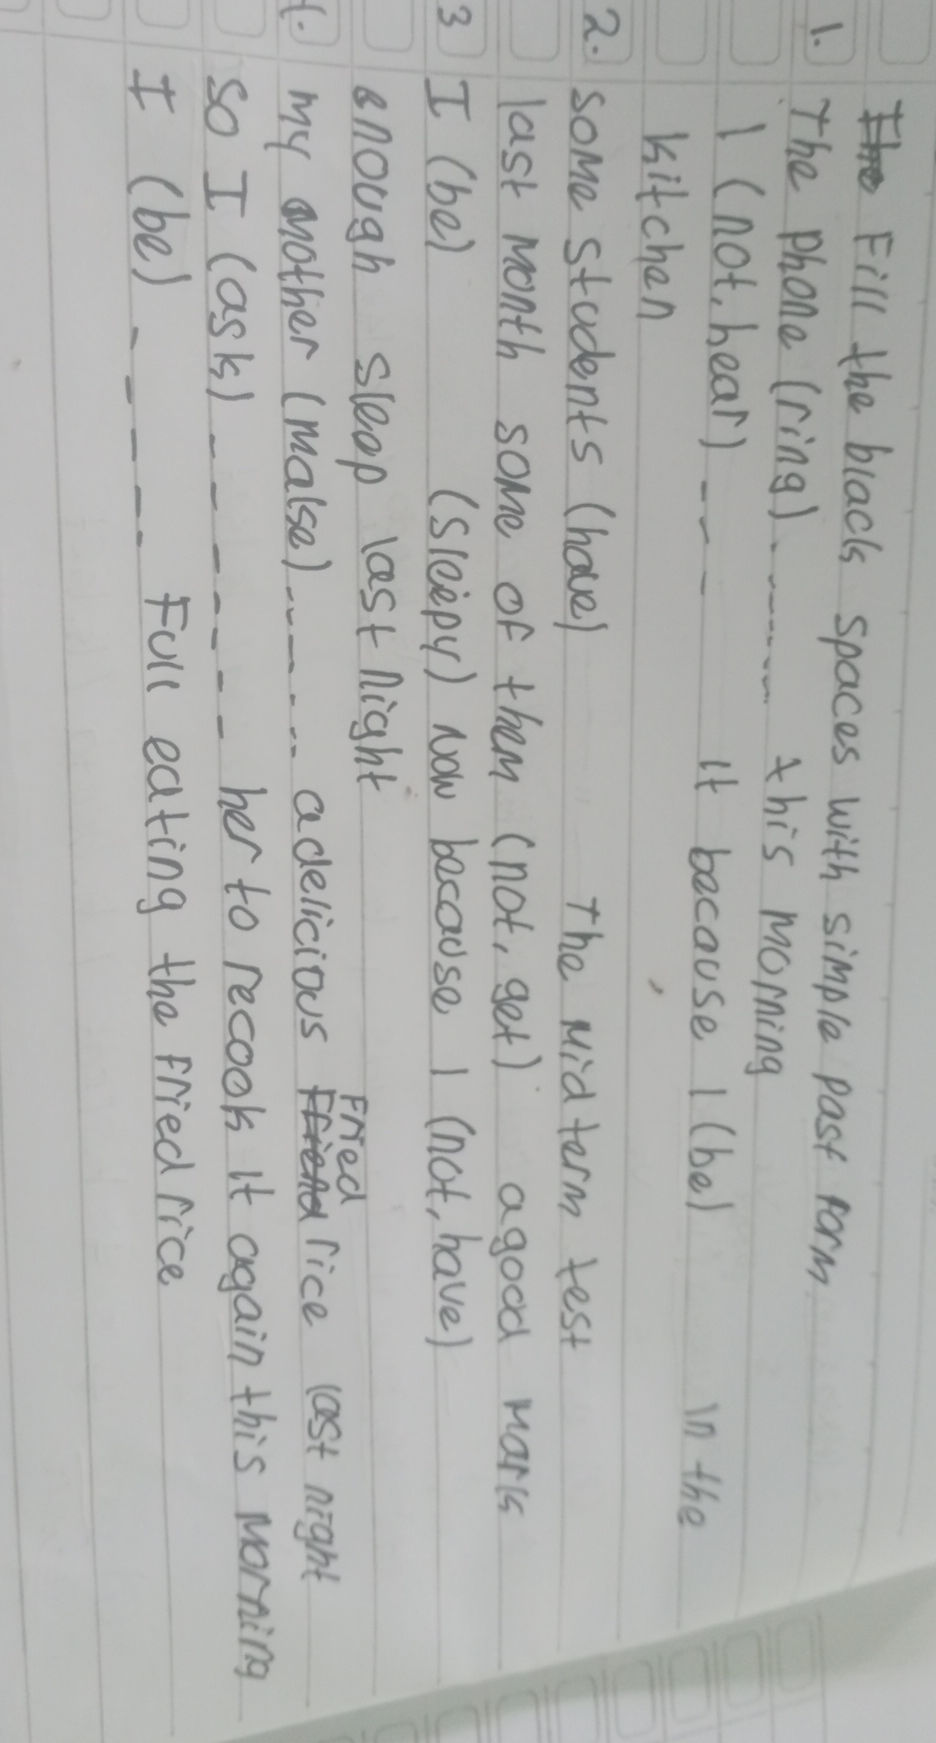 Fill the black spaces with simple past form
1. The phone (ring) ........ this morning
I (not, hear) ---- it because I (be) in the
kitchen
2. Some students (have) The Mid term test
last month some of them (not, get) a good mark
3 I (be) (sleepy) now because I (not, have)
enough sleep last night
4. my mother (make) ------- a delicious Fried rice last night
so I (ask) -------- her to recook it again this morning
I (be) ----- Full eating the Fried rice